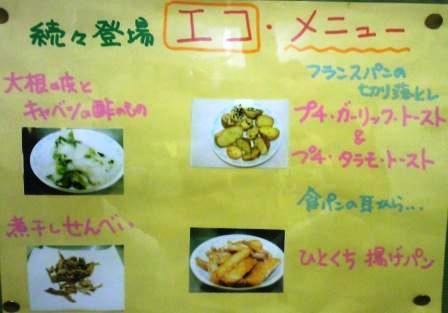 続々登場 エコ・メニュー
大根の皮と
キャベツの酢のもの
フランスパンの
切り落とし
プチ・ガーリック・トースト
&
プチ・タラモ・トースト
煮干しせんべい
食パンの耳から…
ひとくち 揚げパン